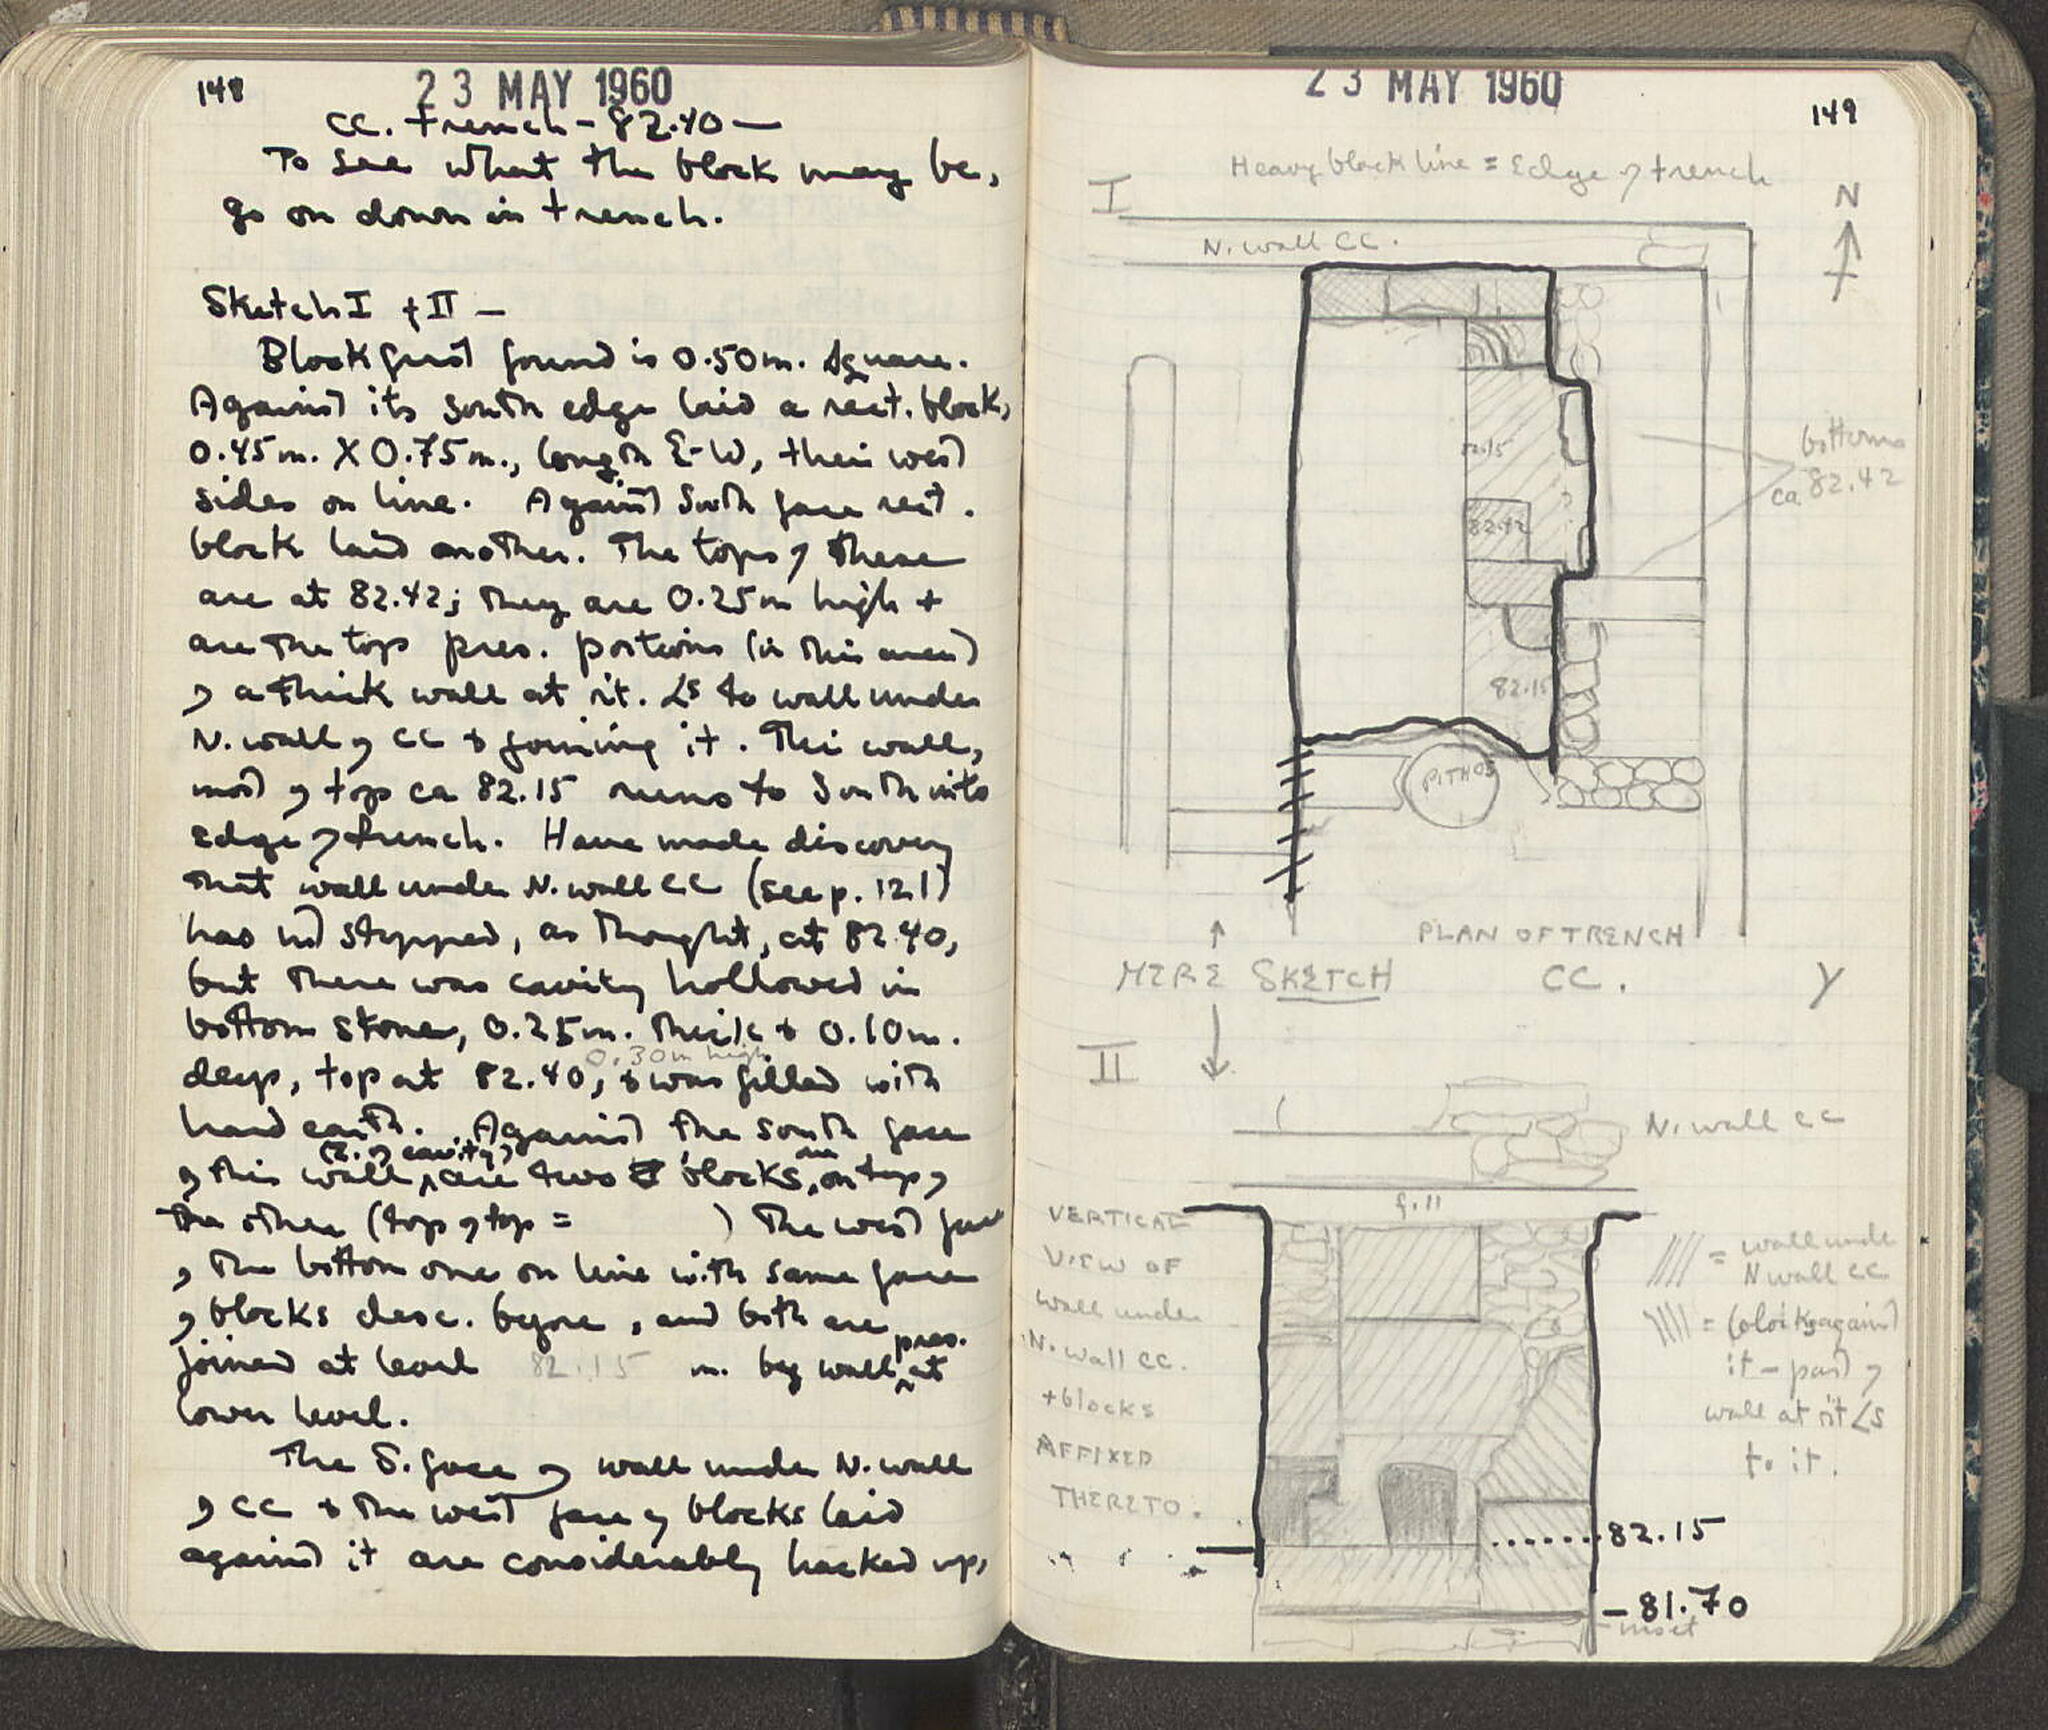 148
23 MAY 1960
CC. trench - 82.40 —
To see what the block may be,
go on down in trench.
Sketch I + II —
Block first found is 0.50m. square.
Against its south edge laid a rect. block,
0.45m. X 0.75m., length E-W, their west
sides on line. Against South face rect.
block laid another. The tops of these
are at 82.42; they are 0.25m high +
are the top pres. portions (in this area)
of a thick wall at rt. ∠s to wall under
N. wall of CC + joining it. This wall,
most of top ca 82.15 runs to South into
edge of trench. Have made discovery
that wall under N. wall CC (see p. 121)
has not stopped, as thought, at 82.40,
but there was cavity hollowed in
bottom stone, 0.25m. thick + 0.10m.
0.30m high
deep, top at 82.40, + was filled with
hard earth. Against the south face
(E. of cavity)
of this wall, are two blocks, one on top of
the other (top of top = ) The west face
of the bottom one on line with same face
of blocks desc. before, and both are
joined at level 82.15 m. by wall pres. at
lower level.
The S. face of wall under N. wall
of CC + the west face of blocks laid
against it are considerably hacked up,
23 MAY 1960
149
Heavy black line = Edge of trench
I
N
N. wall CC.
82.15
bottoms
ca 82.42
82.42
82.15
PITHOS
PLAN OF TRENCH
MERE SKETCH
CC.
Y
II
N. wall CC
fill
VERTICAL
VIEW OF
wall under
N. wall CC.
+ blocks
AFFIXED
THERETO.
= wall under
N wall CC
= blocks against
it - part of
wall at rt ∠s
to it.
82.15
- 81.70
inset